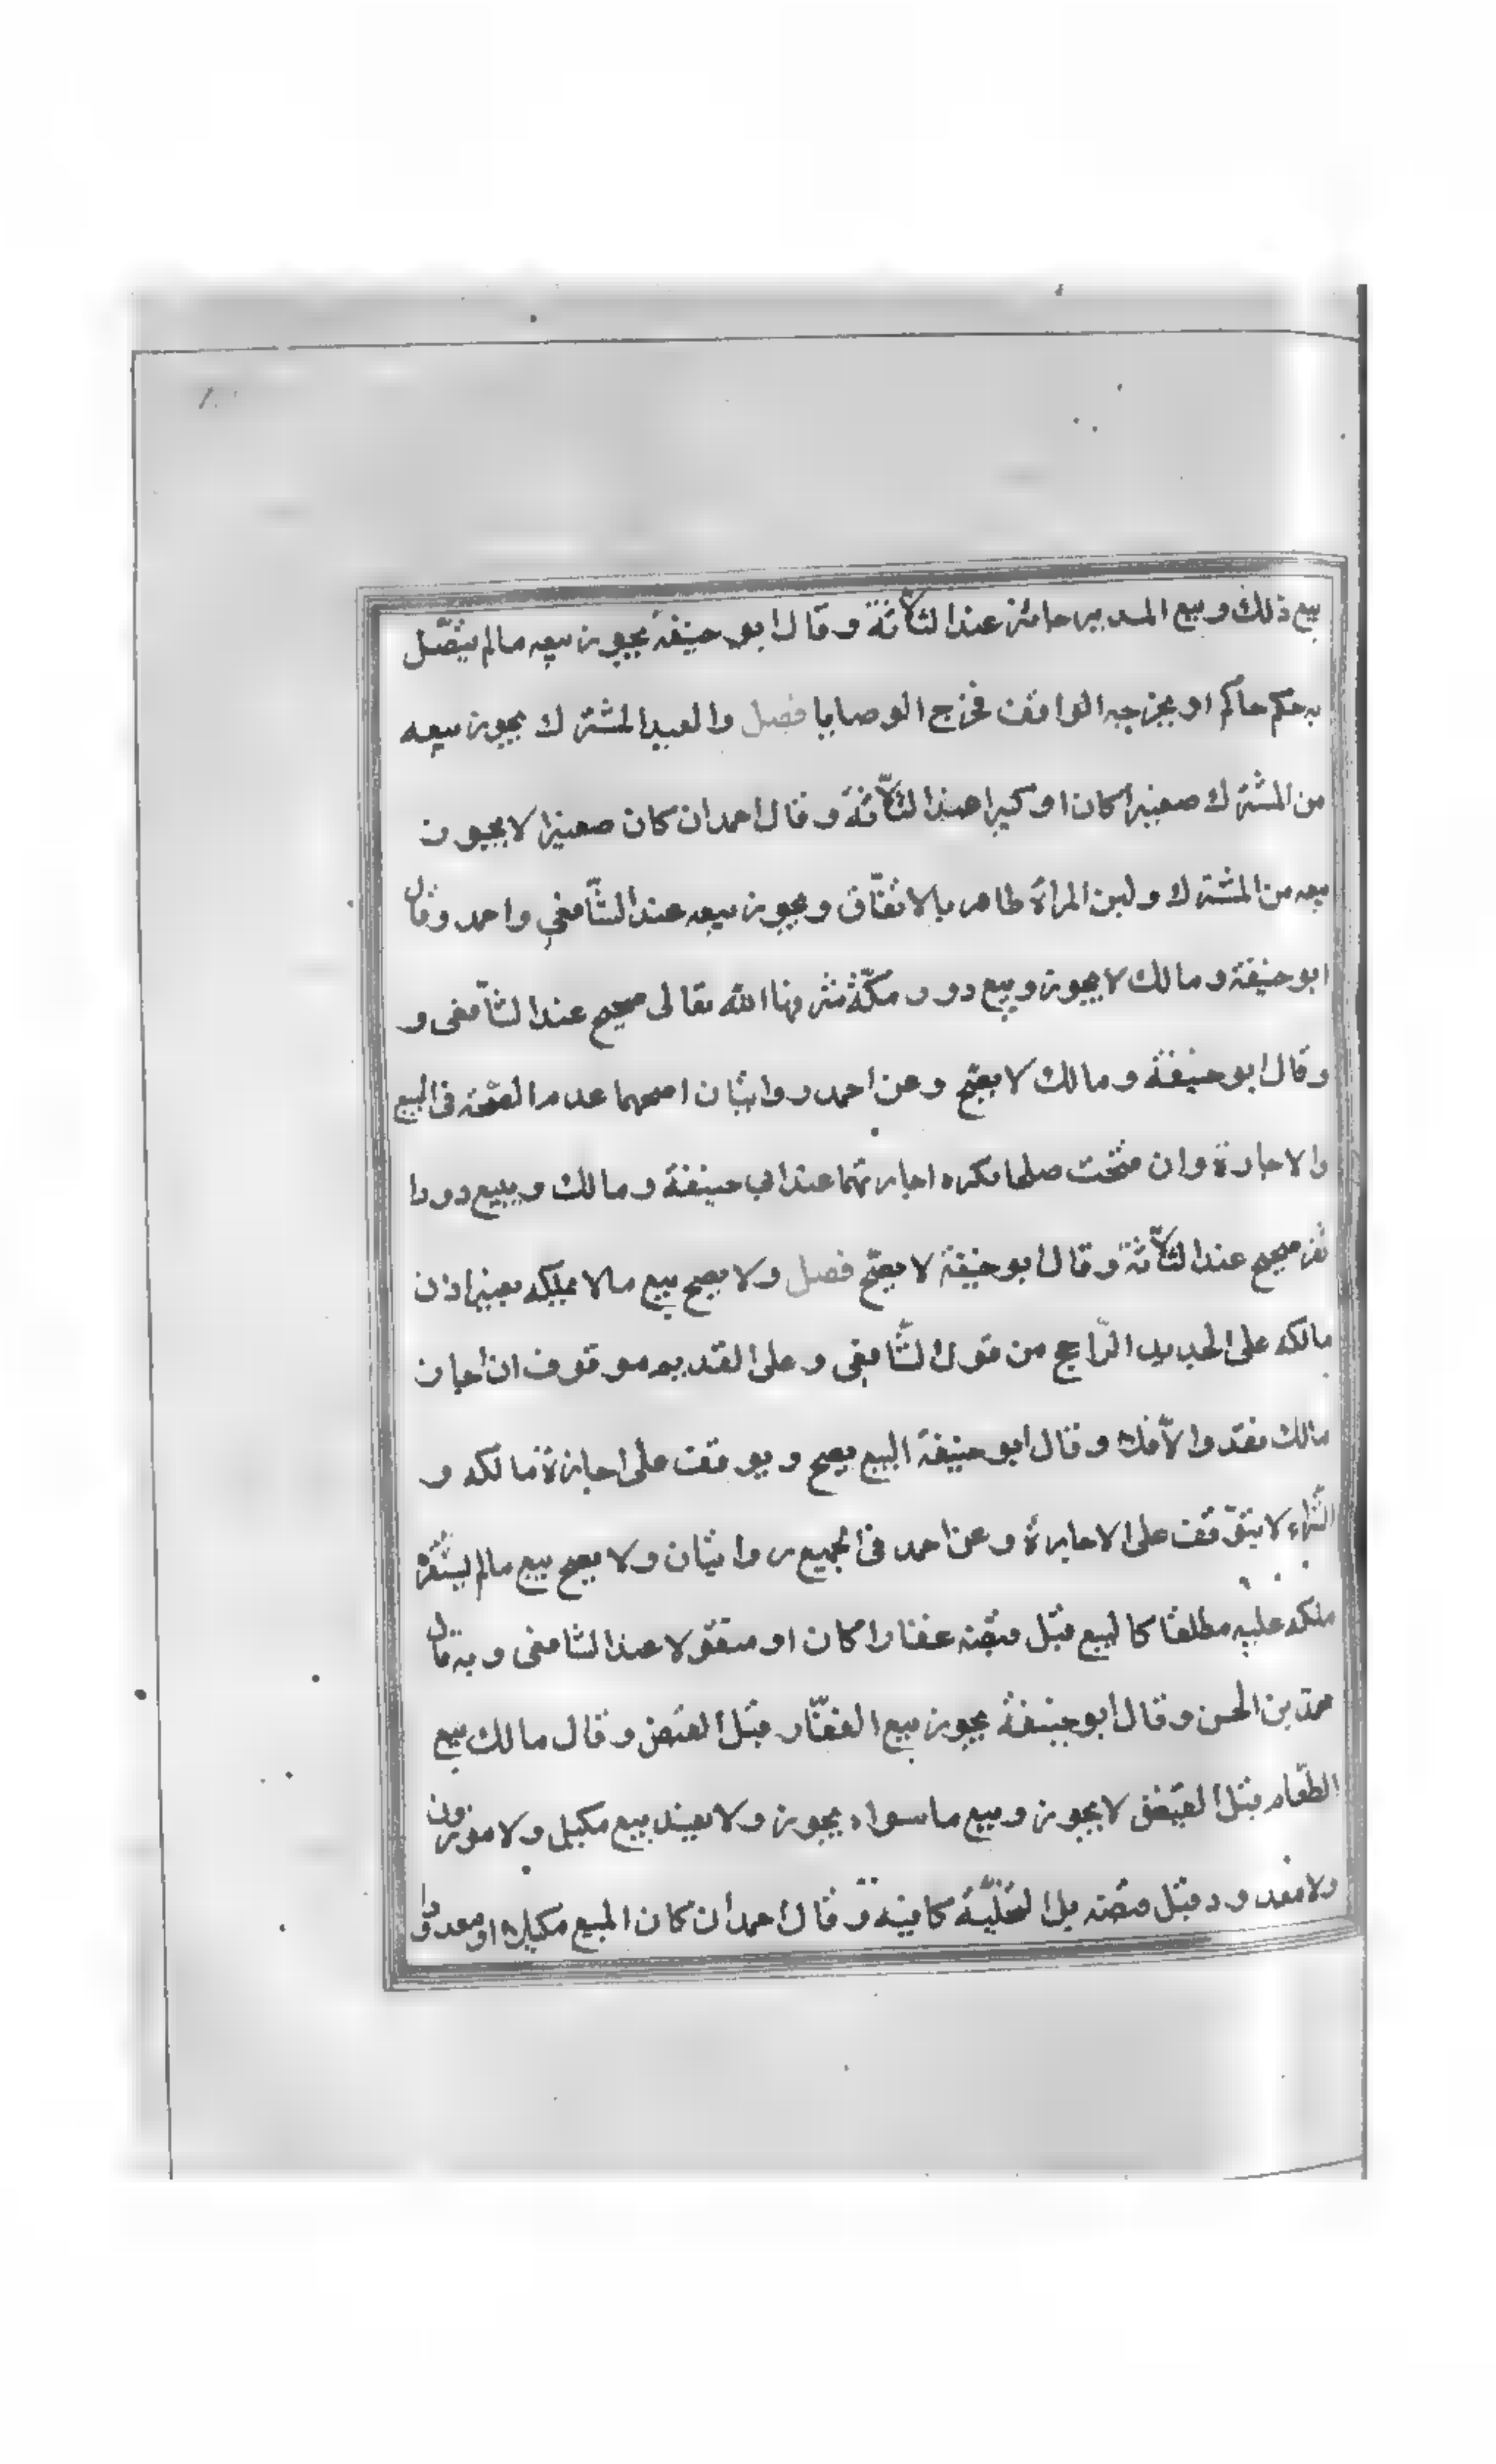 بيع ذلك وبيع المدبر جائز عند الثلاثة وقال ابو حنيفة يجوز بيعه مالم يتصل
به حكم حاكم او يخرجه الواقف مخرج الوصايا فصل والعبد المشترك يجوز بيعه
من المشترك صغيرا كان او كبيرا عند الثلاثة وقال احمد ان كان صغيرا لا يجوز
بيعه من المشترك ولبن المراة طاهر بالاتفاق ويجوز بيعه عند الشافعي واحمد وقال
ابو حنيفة ومالك لا يجوز وبيع دور مكة شرفها الله تعالى صحيح عند الشافعي و
وقال ابو حنيفة ومالك لا يصح وعن احمد روايتان اصحهما عدم الصحة في البيع
والاجارة وان فتحت صلحا يكره اجارتهما عند ابي حنيفة ومالك وبيع دودا
لقز صحيح عند الثلاثة وقال ابو حنيفة لا يصح فصل ولا يصح بيع مالا يملكه بغير اذن
مالكه على الجديد الراجح من قول الشافعي وعلى القديم موقوف ان اجاز
مالك نفذ والا فلا وقال ابو حنيفة البيع يصح ويوقف على اجازة مالكه و
الشراء لا يتوقف على الاجازة وعن احمد في الجميع روايتان ولا يصح بيع مالم يستقر
ملكه عليه مطلقا كالبيع قبل قبضه عقارا كان او منقولا عند الشافعي وبه قال
محمد بن الحسن وقال ابو حنيفة يجوز بيع العقار قبل القبض وقال مالك بيع
الطعام قبل القبض لا يجوز وبيع ماسواه يجوز ولا يفيد بيع مكيل ولا موزون
ولا معدود قبل قبضه بل التخلية كافية وقال احمد ان كان المبيع مكيلا او معدودا